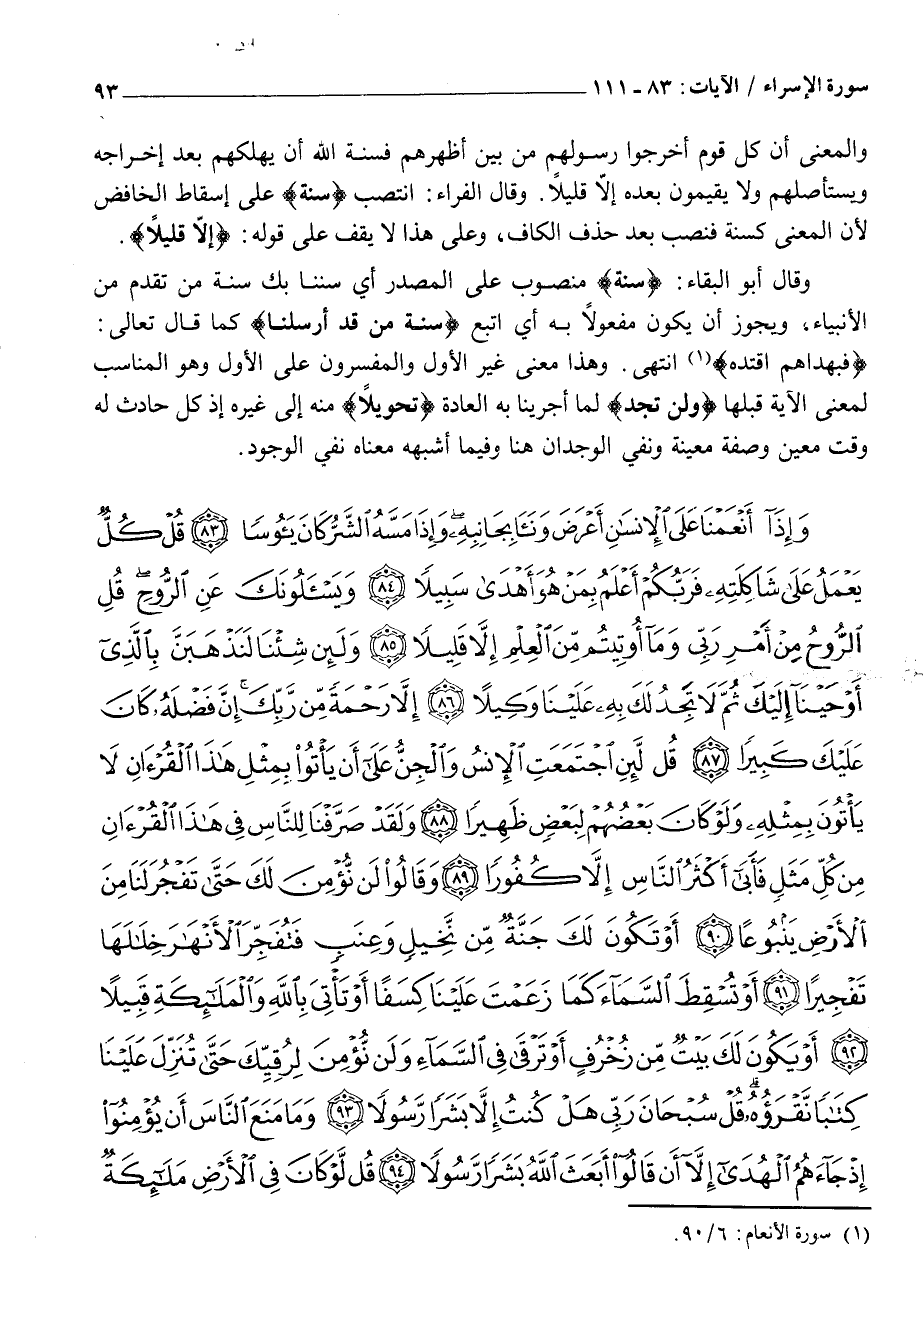 سورة الإسراء / الآيات : ٨٣ - ١١١ ٩٣
والمعنى أن كل قوم أخرجوا رسولهم من بين أظهرهم فسنة الله أن يهلكهم بعد إخراجه
ويستأصلهم ولا يقيمون بعده إلّا قليلاً. وقال الفراء: انتصب ﴿سنة﴾ على إسقاط الخافض
لأن المعنى كسنة فنصب بعد حذف الكاف، وعلى هذا لا يقف على قوله: ﴿إلّا قليلاً﴾.
وقال أبو البقاء: ﴿سنة﴾ منصوب على المصدر أي سننا بك سنة من تقدم من
الأنبياء، ويجوز أن يكون مفعولاً به أي اتبع ﴿سنة من قد أرسلنا﴾ كما قال تعالى:
﴿فبهداهم اقتده﴾(١) انتهى. وهذا معنى غير الأول والمفسرون على الأول وهو المناسب
لمعنى الآية قبلها ﴿ولن تجد﴾ لما أجرينا به العادة ﴿تحويلاً﴾ منه إلى غيره إذ كل حادث له
وقت معين وصفة معينة ونفي الوجدان هنا وفيما أشبهه معناه نفي الوجود.
وَإِذَآ أَنْعَمْنَا عَلَى ٱلْإِنسَٰنِ أَعْرَضَ وَنَـَٔا بِجَانِبِهِۦ ۖ وَإِذَا مَسَّهُ ٱلشَّرُّ كَانَ يَـُٔوسًا ﴿٨٣﴾ قُلْ كُلٌّ
يَعْمَلُ عَلَىٰ شَاكِلَتِهِۦ فَرَبُّكُمْ أَعْلَمُ بِمَنْ هُوَ أَهْدَىٰ سَبِيلًا ﴿٨٤﴾ وَيَسْـَٔلُونَكَ عَنِ ٱلرُّوحِ ۖ قُلِ
ٱلرُّوحُ مِنْ أَمْرِ رَبِّى وَمَآ أُوتِيتُم مِّنَ ٱلْعِلْمِ إِلَّا قَلِيلًا ﴿٨٥﴾ وَلَئِن شِئْنَا لَنَذْهَبَنَّ بِٱلَّذِىٓ
أَوْحَيْنَآ إِلَيْكَ ثُمَّ لَا تَجِدُ لَكَ بِهِۦ عَلَيْنَا وَكِيلًا ﴿٨٦﴾ إِلَّا رَحْمَةً مِّن رَّبِّكَ ۚ إِنَّ فَضْلَهُۥ كَانَ
عَلَيْكَ كَبِيرًا ﴿٨٧﴾ قُل لَّئِنِ ٱجْتَمَعَتِ ٱلْإِنسُ وَٱلْجِنُّ عَلَىٰٓ أَن يَأْتُوا۟ بِمِثْلِ هَٰذَا ٱلْقُرْءَانِ لَا
يَأْتُونَ بِمِثْلِهِۦ وَلَوْ كَانَ بَعْضُهُمْ لِبَعْضٍ ظَهِيرًا ﴿٨٨﴾ وَلَقَدْ صَرَّفْنَا لِلنَّاسِ فِى هَٰذَا ٱلْقُرْءَانِ
مِن كُلِّ مَثَلٍ فَأَبَىٰٓ أَكْثَرُ ٱلنَّاسِ إِلَّا كُفُورًا ﴿٨٩﴾ وَقَالُوا۟ لَن نُّؤْمِنَ لَكَ حَتَّىٰ تَفْجُرَ لَنَا مِنَ
ٱلْأَرْضِ يَنۢبُوعًا ﴿٩٠﴾ أَوْ تَكُونَ لَكَ جَنَّةٌ مِّن نَّخِيلٍ وَعِنَبٍ فَتُفَجِّرَ ٱلْأَنْهَٰرَ خِلَٰلَهَا
تَفْجِيرًا ﴿٩١﴾ أَوْ تُسْقِطَ ٱلسَّمَآءَ كَمَا زَعَمْتَ عَلَيْنَا كِسَفًا أَوْ تَأْتِىَ بِٱللَّهِ وَٱلْمَلَٰٓئِكَةِ قَبِيلًا
﴿٩٢﴾ أَوْ يَكُونَ لَكَ بَيْتٌ مِّن زُخْرُفٍ أَوْ تَرْقَىٰ فِى ٱلسَّمَآءِ وَلَن نُّؤْمِنَ لِرُقِيِّكَ حَتَّىٰ تُنَزِّلَ عَلَيْنَا
كِتَٰبًا نَّقْرَؤُهُۥ ۗ قُلْ سُبْحَانَ رَبِّى هَلْ كُنتُ إِلَّا بَشَرًا رَّسُولًا ﴿٩٣﴾ وَمَا مَنَعَ ٱلنَّاسَ أَن يُؤْمِنُوٓا۟
إِذْ جَآءَهُمُ ٱلْهُدَىٰٓ إِلَّآ أَن قَالُوٓا۟ أَبَعَثَ ٱللَّهُ بَشَرًا رَّسُولًا ﴿٩٤﴾ قُل لَّوْ كَانَ فِى ٱلْأَرْضِ مَلَٰٓئِكَةٌ
(١) سورة الأنعام: ٩٠/٦.